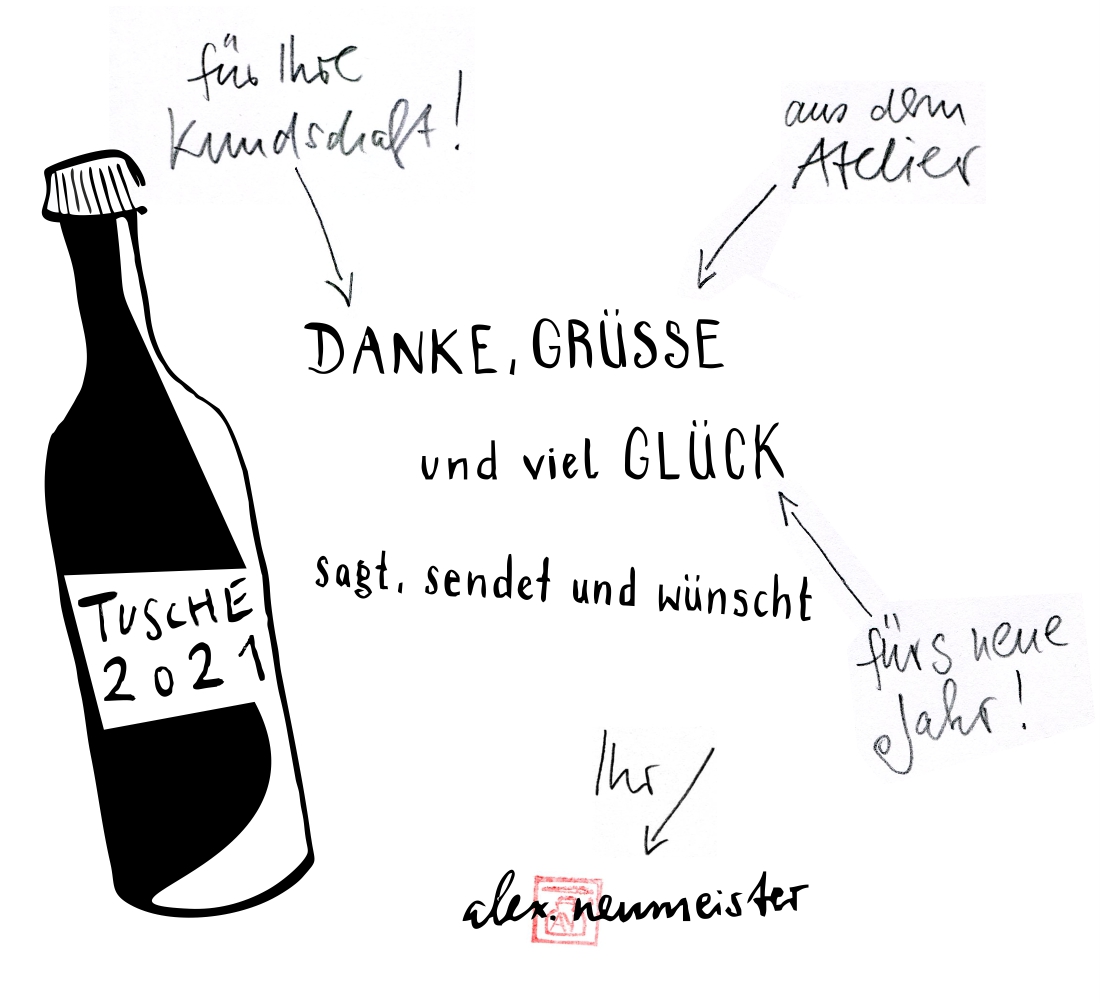 für Ihre
Kundschaft!
aus dem
Atelier
DANKE, GRÜSSE
und viel GLÜCK
sagt, sendet und wünscht
TUSCHE
2021
fürs neue
Jahr!
Ihr
alex. neumeister
AN